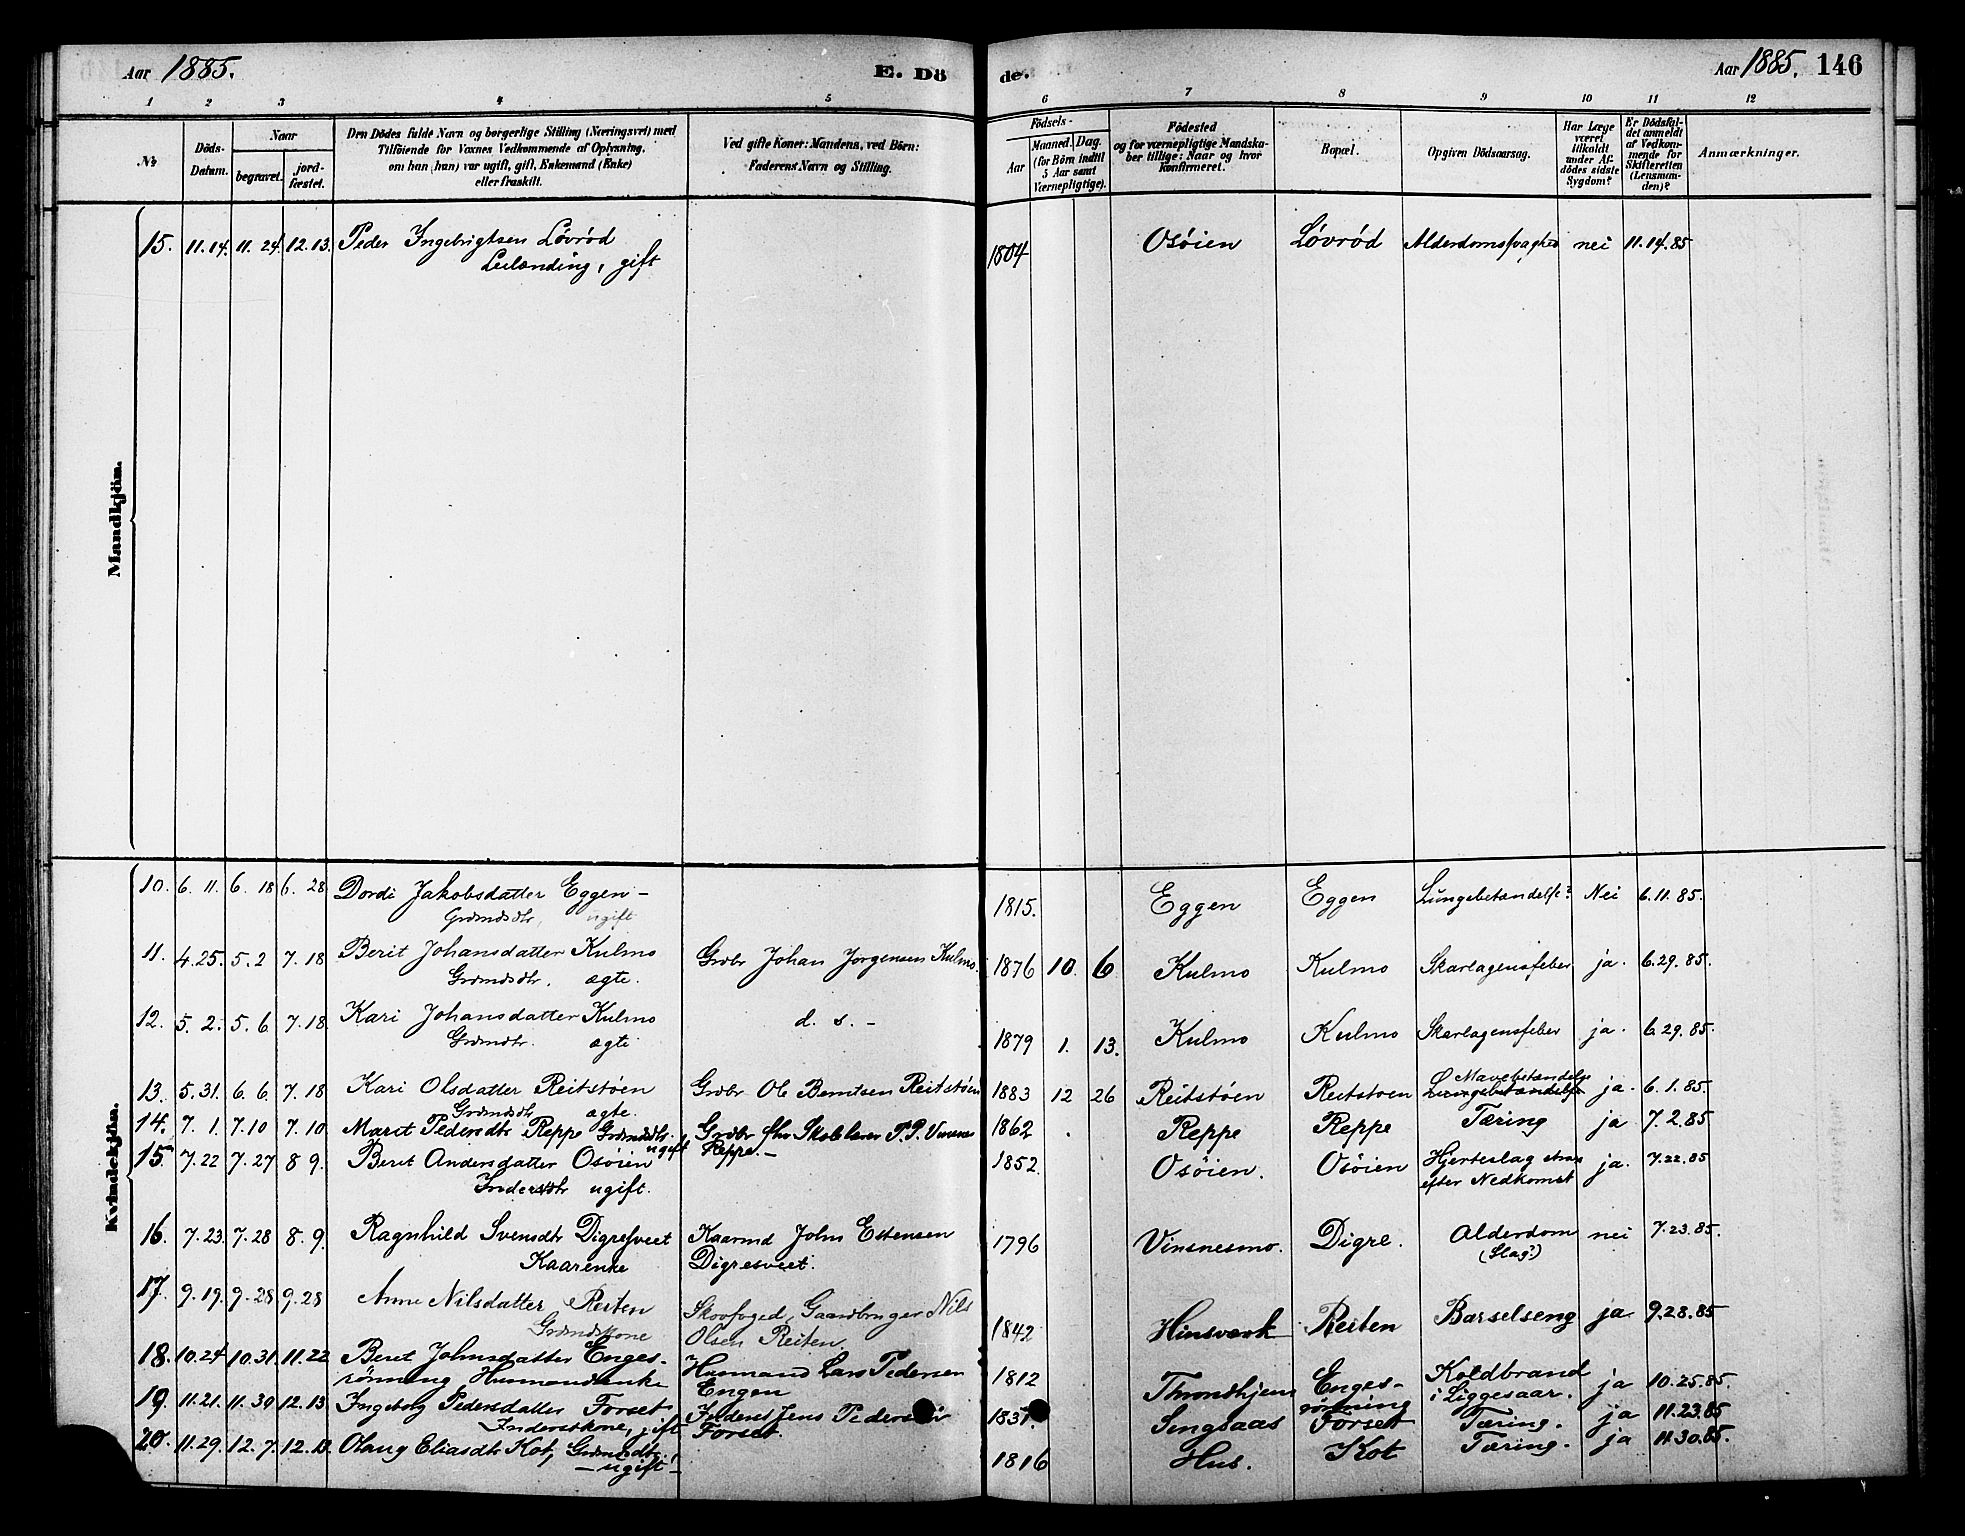 Aar 1885. E. Dö de. Aar 1885. 146
1 2 3 4 5 6 7 8 9 10 11 12
No Döds-Datum. Naar begravet. jord-fæstet. Den Dödes fulde Navn og borgerlige Stilling (Næringsvei) med Tilföiende for Voxnes Vedkommende af Oplysning, om han (hun) var ugift, gift, Enkemand (Enke) eller fraskilt. Ved gifte Koner: Mandens, ved Börn: Faderens Navn og Stilling. Födsels- Aar Maaned. Dag. (for Börn indtil 5 Aar samt Værnepligtige). Födested og for værnepligtige Mandskaber tillige: Naar og hvor Konfirmeret. Bopæl. Opgiven Dödsaarsag. Har Læge været tilkaldt under Afdödes sidste Sygdom? Er Dödsfaldet anmeldt af Vedkommende for Skifteretten (Lensmanden)? Anmærkninger.
Mandkjön.
15. 11.14. 11.24. 12.13. Peder Ingebrigtsen Lövröd 1804 Osöien Lövröd Alderdomssvaghed nei 11.14.85
Leilænding, gift
Kvindekjön.
10. 6. 11. 6. 18 6. 28 Dordi Jakobsdatter Eggen- 1815. Eggen Eggen Lungebetændelse? Nei 6.11.85.
Grdmdsdtr, ugift
11. 4.25. 5.2 7.18 Berit Johansdatter Kulmo Grdbr Johan Jørgensen Kulmo. 1876 10. 6 Kulmo Kulmo Skarlagensfeber ja. 6.29.85.
Grdmdsdtr. ægte.
12. 5.2. 5.6 7.18 Kari Johansdatter Kulmo d. s. - 1879 1. 13. Kulmo Kulmo Skarlagensfeber ja. 6.29.85.
Grdmdtr. ægte
13. 5.31. 6.6. 7.18 Kari Olsdatter Reitstøen Grdbr Ole Berntsen Reitstøen 1883 12 26 Reitstøen Reitstoen Mavebetændelse Lungebetændelse ja. 6.1.85.
Grdmdsdtr ægte.
14. 7.1. 7.10 7.10 Marit Pedersdtr Reppe Grdmdsdtr. ugift Grdbr fhv Skolelærer P.P. Vinsnes Reppe.- 1862 Reppe Reppe Tæring ja 7.2.85.
15. 7.22 7.27 8 9. Beret Andersdatter Osöien 1852. Osöien. Osöien Hjerteslag strax efter Nedkomst ja. 7.22.85
Inderstdtr ugift.
16. 7.23. 7.28 8.9. Ragnhild Svensdtr Digresveet Kaarmd John Estensen Digresveet. 1796 Vinsnesmo. Digre. Alderdom (Slag?) nei 7.23.85.
Kaarenke
17. 9.19. 9.28 9.28 Anne Nilsdatter Reiten Skovfoged, Gaardbruger Nils Olsen Reiten. 1842 Hinsværk Reiten Barselseng ja 9.28.85
Grdmdskone
18. 10.24 10.31. 11.22 Beret Johnsdatter Enges- Husmand Lars Pedersen Engen 1812 Throndhjem Enges-rönning Koldbrand i Liggesaar. ja 10.25.85.
rönning Husmandsenke
19. 11.21. 11.30 12.13 Ingeborg Pedersdatter Forset Inderst Jens Pedersen Forset. 1831. Singsaas Forset Tæring. ja 11.23.85
Inderstkone, gift
20. 11.29. 12.7. 12.13. Olaug Eliasdtr Kot, Grdmdsdtr, 1816 Hus. Kot Tæring. ja 11.30.85.
- ugift! -